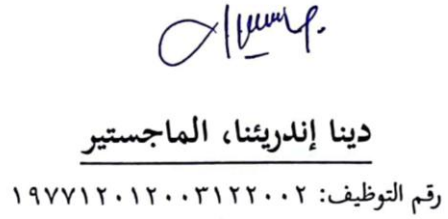 دينا إندريئنا، الماجستير
رقم التوظيف: ١٩٧٧١٢٠١٢٠٠٣١٢٢٠٠٢